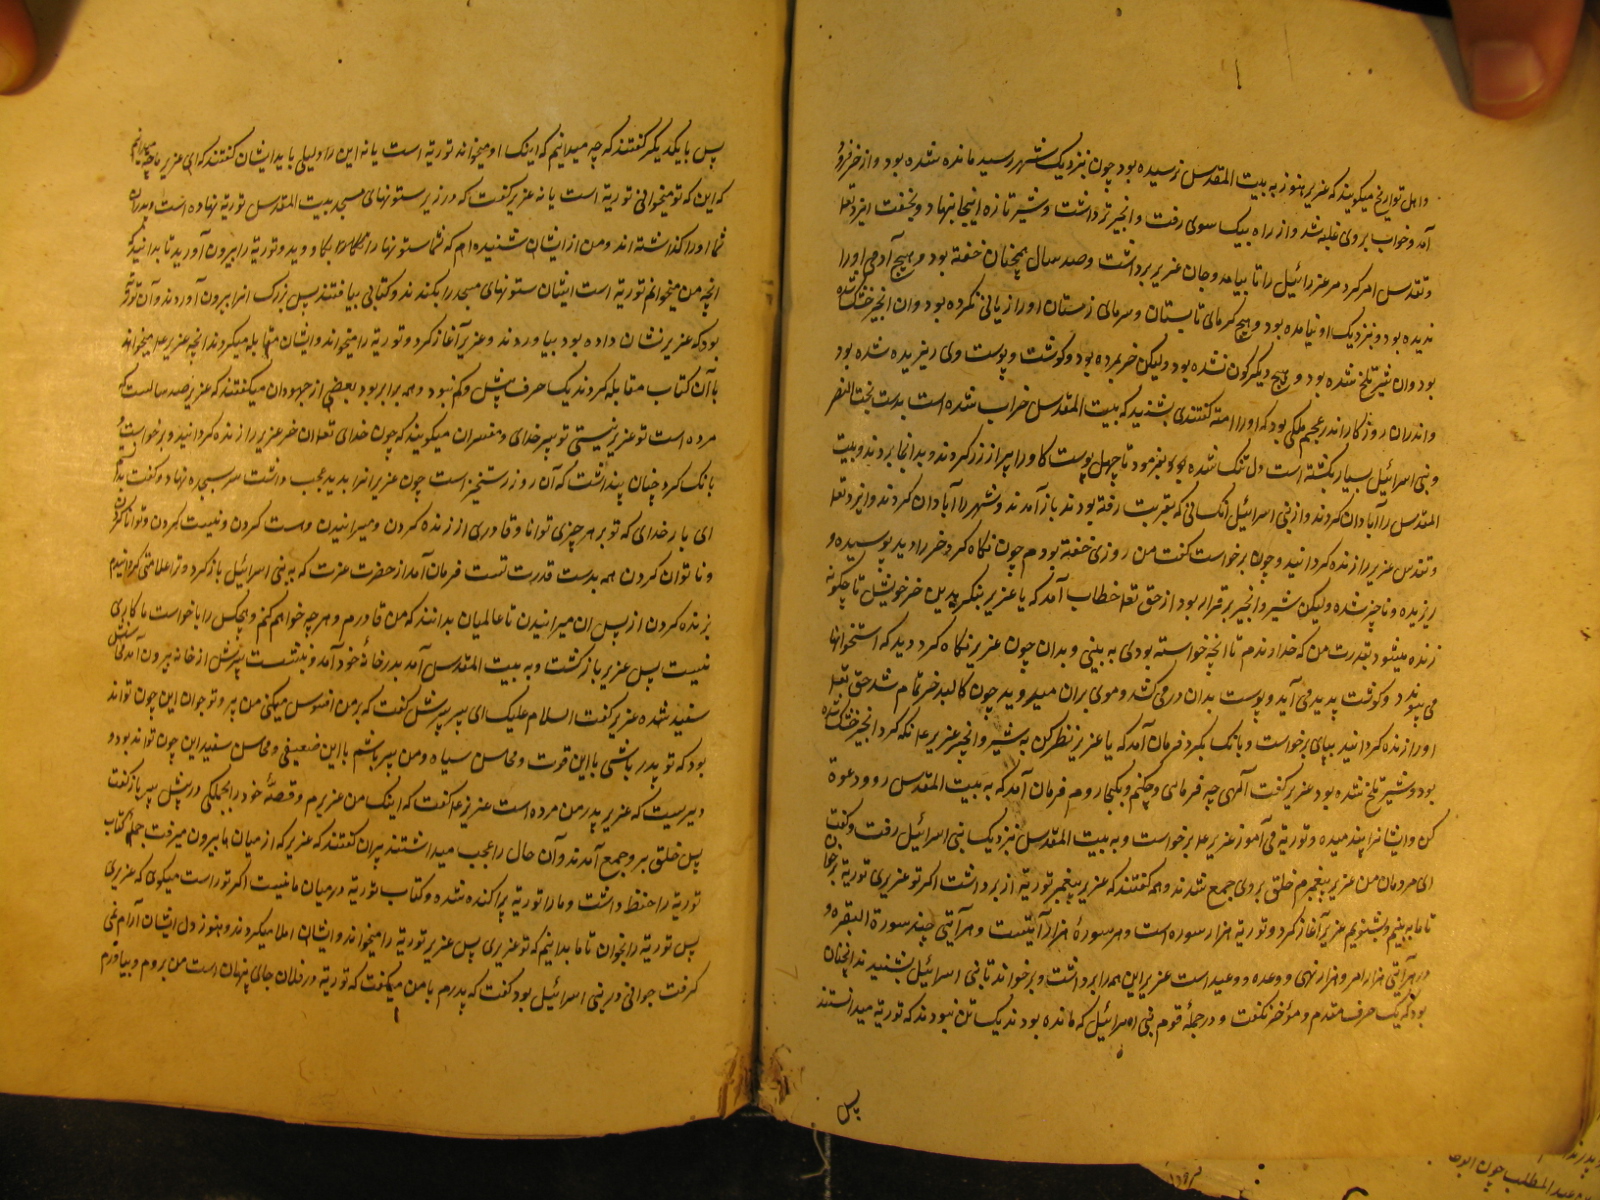 و اهل تواریخ میگویند که عزیر هنوز به بیت المقدس نرسیده بود چون بنزدیک شهر رسید مانده شده بود و از خر فرود
آمد و خواب بر وی غلبه شد و از راه بیک سوی رفت و انجیر تر داشت و شیر تازه اینجا بنهاد و بخفت ایزد تعا
و تقدس امر کرد مر عزرائیل را تا بیامد و جان عزیر برداشت و صد سال همچنان خفته بود و هیچ آدمی او را
ندیده بود و بنزدیک او نیامده بود و هیچ گرمای تابستان و سرمای زمستان او را زیانی نکرده بود و ان انجیر خشک شده
بود و ان شیر تلخ شده بود و هیچ دیگرگون نشده بود ولیکن خر مرده بود و گوشت و پوست وی ریزیده شده بود
و اندران روزگار اندر عجم ملکی بود که او را گفتندی بشنید که بیت المقدس خراب شده است بدست بخت النصر
و بنی اسرائیل بسیار بکشته است دل تنگ شده بفرمود تا چهل پوست گاو را پر از زر کردند و بدانجا بردند و بیت
المقدس را آبادان کردند و از بنی اسرائیل آنکسانی که بغربت رفته بودند باز آمدند و شهر را آبادان کردند و ایزد تعا
و تقدس عزیر را زنده گردانید و چون برخاست گفت من روزی خفته بودم چون نگاه کرد خر را دید پوسیده و
ریزیده و ناچیز شده ولیکن شیر و انجیر برقرار بود از حق تعا خطاب آمد که یا عزیر بنگر بدین خر خویش تا چگونه
زنده میشود بقدرت من که خداوندم تا انچه خواسته بودی به بینی و بدان چون عزیر نگاه کرد دید که استخوانها
می پیوندد و گوشت پدید می آید و پوست بدان در می کشد و موی بران میروید چون کالبد خر تمام شد حق تعا
او را زنده گردانید بپای برخواست و بانگ بکرد فرمان آمد که یا عزیر نظر کن به شیر و انجیر عزیر ع م نگه کرد انجیر خشک شده
بود و شیر تلخ شده بود عزیر گفت الهی چه فرمای و چکنم و بکجا روم فرمان آمد که به بیت المقدس رو و دعوة
کن و ایشانرا پند میده و توریة می آموز عزیر ع م برخواست و به بیت المقدس نزدیک بنی اسرائیل رفت و گفت
ای مردمان من عزیر پیغمبرم خلق بر وی جمع شدند و همه گفتند که عزیر پیغمبر توریة از بر داشت اگر تو عزیری توریة برخوان
تا ما به بینیم و بشنویم عزیر آغاز کرد و توریة هزار سوره است و هر سورهٔ هزار آیتست و هر آیتی چند سورة البقره و
در هر آیتی هزار امر و هزار نهی و وعده و وعید است عزیر این همه را برداشت و برخواند تا بنی اسرائیل بشنیدند انچنان
بود که یک حرف مقدم و مؤخر نگفت و در جملهٔ قوم بنی اسرائیل که مانده بودند یک تن نبودند که توریة میدانستند
پس
پس با یکدیگر گفتند که چه میدانیم که اینک او میخواند توریة است یا نه این را دلیلی باید ایشان گفتند که ای عزیر ما چه میدانیم
که این که تو میخوانی توریة است یا نه عزیر گفت که در زیر ستونهای مسجد بیت المقدس توریة نهاده است و پدران
شما او را گذاشته اند و من از ایشان شنیده ام که شما ستونها را بکاوید و توریة را بیرون آورید تا بدانید که
انچه من میخوانم توریة است ایشان ستونهای مسجد را بکندند و کتابی بیافتند پس بزرگ انرا بیرون آوردند و آن توریة
بود که عزیر نشان داده بود بیاوردند و عزیر آغاز کرد و توریة را میخواند و ایشان مقابله میکردند انچه عزیر ع م میخواند
با آن کتاب مقابله کردند یک حرف بیش و کم نبود و همه برابر بود بعضی از جهودان میگفتند که عزیر صد سالست که
مرده است تو عزیر نیستی تو پسر خدای و مفسران میگویند که چون خدای تعا ان خر عزیر را زنده گردانید و برخواست و
بانگ کرد چنان پنداشت که آن روز رستخیز است چون عزیر انرا بدید عجب داشت سر بسجده نهاد و گفت بدانم
ای بار خدای که تو بر هر چیزی توانا و قادری از زنده کردن و میرانیدن و هست کردن و نیست کردن و توانا کردن
و ناتوان کردن همه بدست قدرت تست فرمان آمد از حضرت عزت که به بنی اسرائیل باز گرد و ترا علامتی گردانیدم
بزنده کردن از پس ان میرانیدن تا عالمیان بدانند که من قادرم و هر چه خواهم کنم و هیچکس را با خواست ما کاری
نیست پس عزیر بازگشت و به بیت المقدس آمد بدر خانهٔ خود آمد و بنشست پسرش از خانه بیرون آمد محاسنش
سفید شده عزیر گفت السلام علیک ای پسر پسرش گفت که بر من افسوس میکنی من پیر و تو جوان این چون تواند
بود که تو پدر باشی با این قوت و محاسن سیاه و من پسر باشم با این ضعیفی و محاسن سفید این چون تواند بود و
دیرست که عزیر پدر من مرده است عزیر ع م گفت که اینک من عزیرم و قصهٔ خود را بجملگی در پیش پسر باز گفت
پس خلق بر و جمع آمدند و آن حال را عجب میداشتند پیران گفتند که عزیر که از میان ما بیرون میرفت جملهٔ کتاب
توریة را حفظ داشت و ما را توریة پراکنده شده و کتاب توریة در میان ما نیست اگر تو راست میگوی که عزیری
پس توریة را بخوان تا ما بدانیم که تو عزیری پس عزیر توریة را میخواند و ایشان املا میکردند و هنوز دل ایشان آرام نمی
گرفت جوانی در بنی اسرائیل بود گفت که پدرم با من میگفت که توریة در فلان جای پنهان است من بروم و بیاورم
عبد المطلب چون